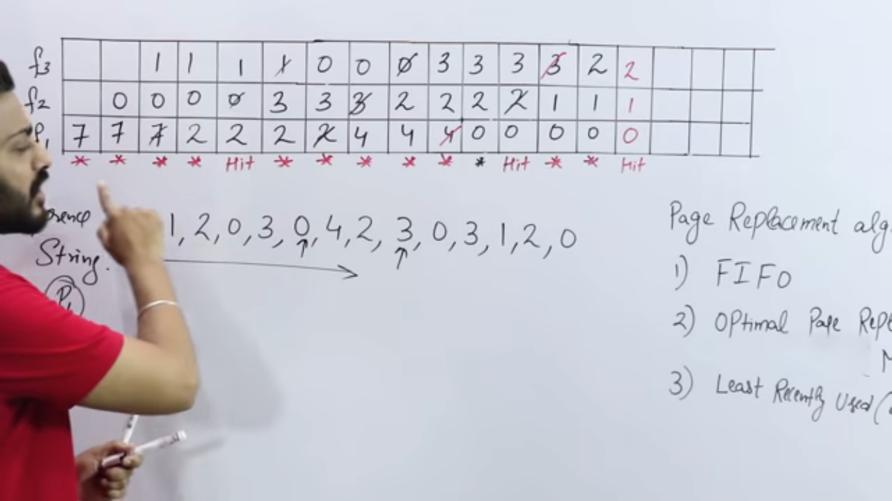 f3 1 1 1 1 0 0 0 3 3 3 3 2 2
f2 0 0 0 0 3 3 3 2 2 2 2 1 1 1
7 7 7 2 2 2 2 4 4 4 0 0 0 0 0
* * * * Hit * * * * * * Hit * * Hit
1, 2, 0, 3, 0, 4, 2, 3, 0, 3, 1, 2, 0
String.
P1
Page Replacement alg
1) FIFO
2) Optimal Page Repl
3) Least Recently Used (